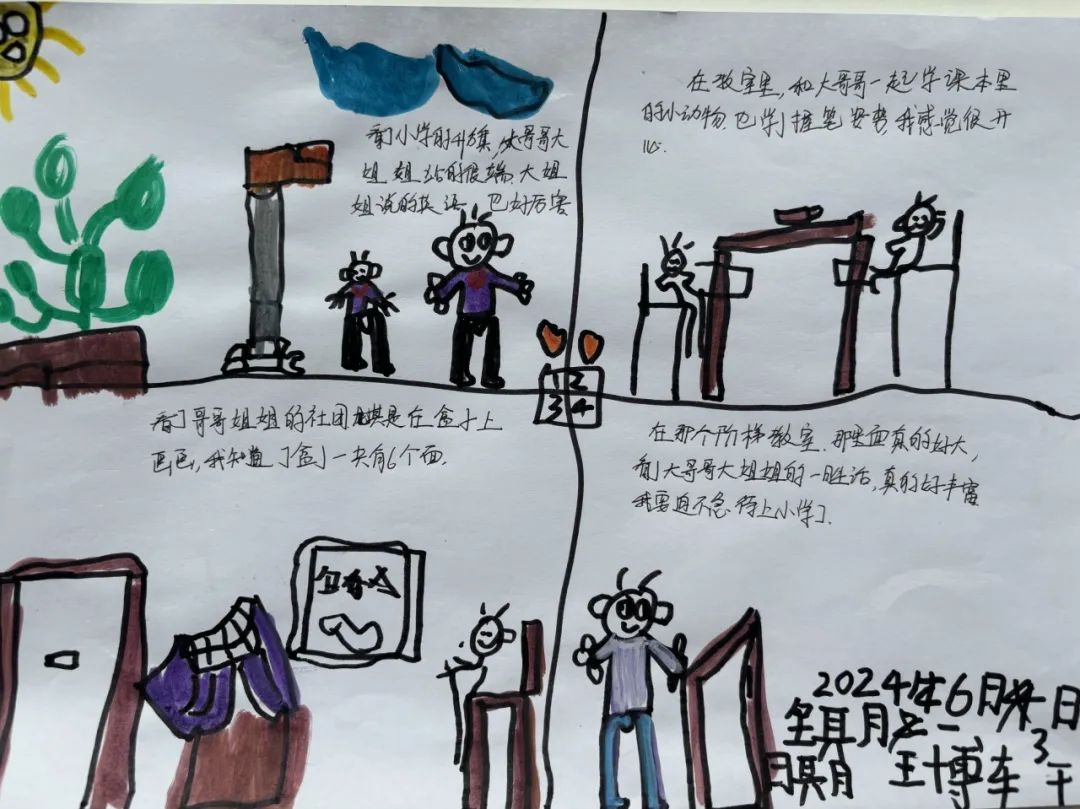 看了小学的升旗，大哥哥大
姐姐站的很端，大姐
姐说的英语 也好厉害
在教室里，和大哥哥一起学课本里
的小动物，也学了握笔姿势，我感觉很开
心.
1 2
3 4
看了哥哥姐姐的社团 是在盒子上
画画，我知道了盒子一共有6个面.
在那个阶梯教室，那里面真的好大，
看了大哥哥大姐姐的一 生活，真的好丰富
我要迫不急待上小学了.
2024年6月 日
星其月二
王博车
3